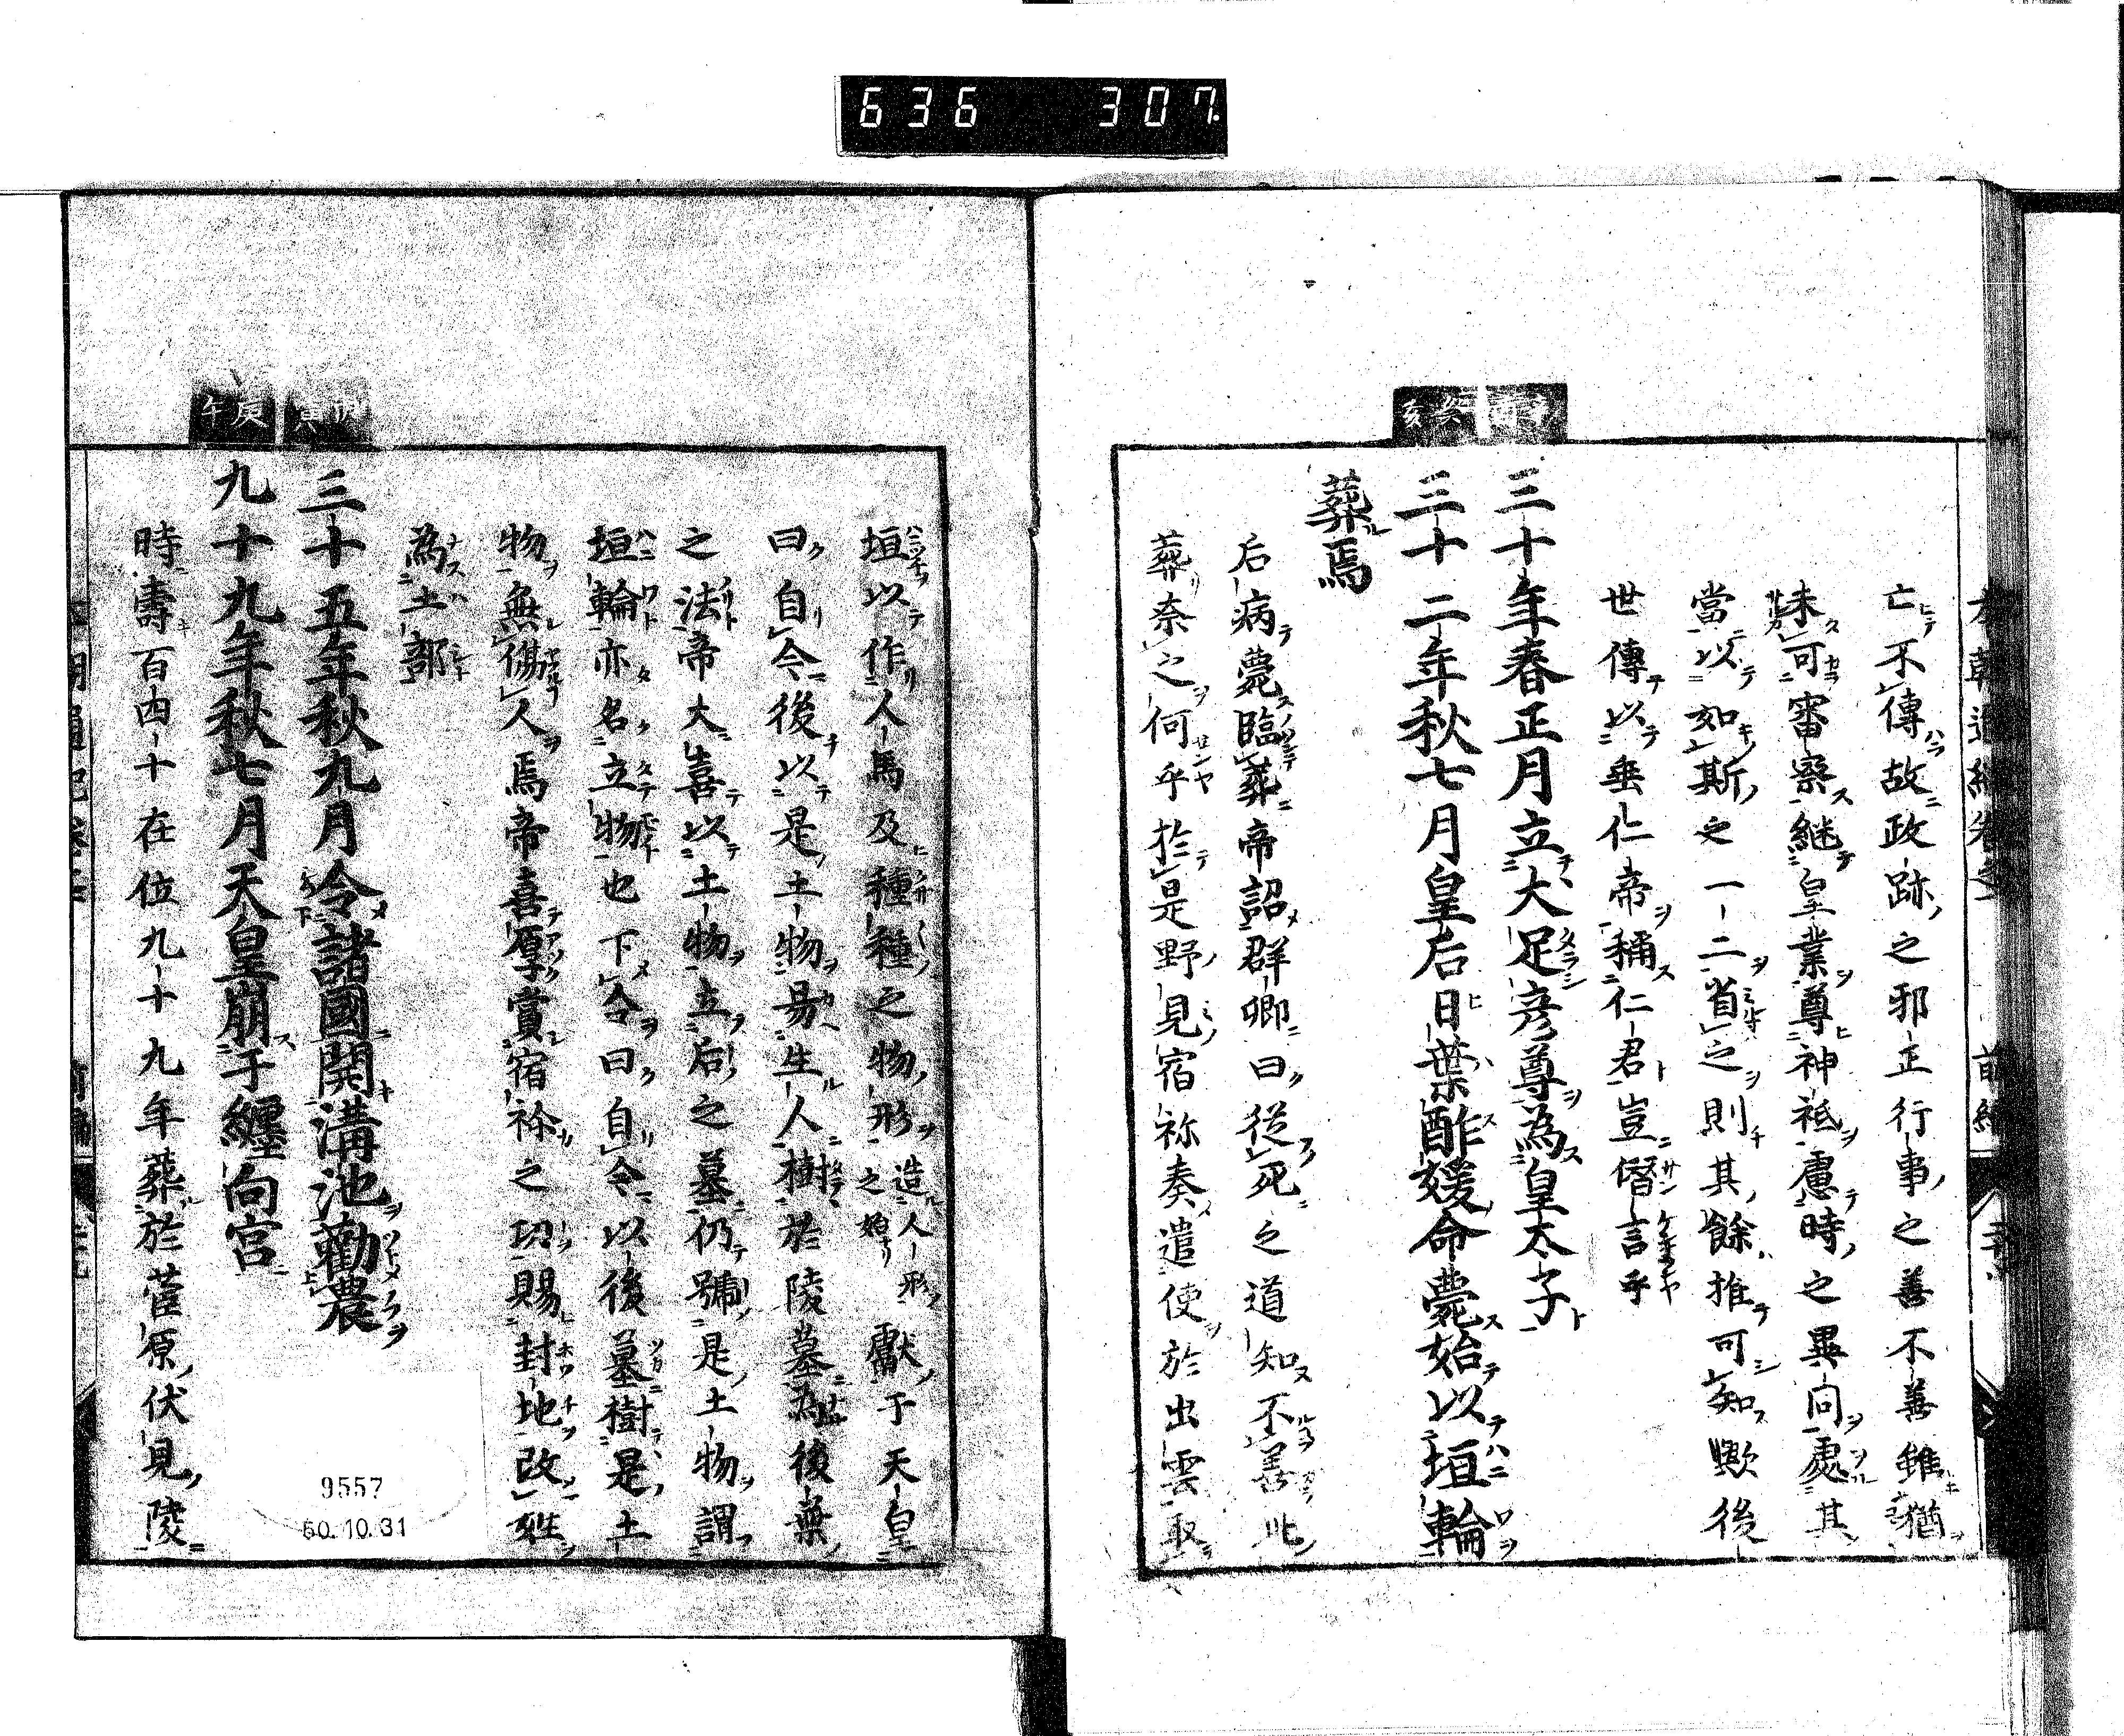 636 307.
亡不傳故政跡之邪正行事之善不善雖猶
未可審察継皇業尊神祗慮時之異向處其
當以如斯之一二省之則其餘推可知歟後
世傳以垂仁帝稱仁君豈僭言乎
三十年春正月立大足彦尊為皇太子
三十二年秋七月皇后日葉酢媛命薨始以垣輪
葬焉
后病薨臨葬帝詔群卿曰從死之道知不善此
葬奈之何乎於是野見宿祢奏遣使於出雲取
垣以作人馬及種種之物形造人形之始獻于天皇
曰自今後以是土物易生人樹於陵墓為後葉
之法帝大喜以土物立后之墓仍號是土物謂
垣輪亦名立物也下令曰自今以後墓樹是土
物無傷人焉帝喜厚賞宿祢之功賜封地改姓
為土部
庚午 寅
三十五年秋九月令諸國開溝池勸農
九十九年秋七月天皇崩于纏向宮
時壽百四十在位九十九年葬於菅原伏見陵
9557
50.10.31